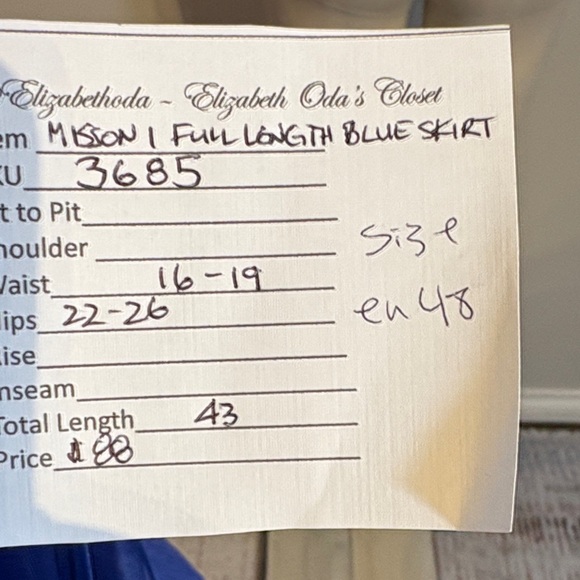 Elizabethoda ~ Elizabeth Oda's Closet
em MISSONI FULL LENGTH BLUE SKIRT
KU 3685
t to Pit
houlder
Size
Waist 16-19
ips 22-26
en 48
ise
nseam
Total Length 43
Price $88